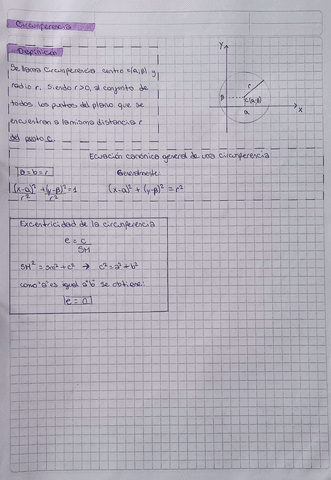 Circunferencia
Definición
Se llama circunferencia centro c(α,β) y
radio r. Siendo r>0, al conjunto de
todos los puntos del plano que se
encuentran a la misma distancia r
del punto C.
y
β
r
c(α,β)
x
α
Ecuación canónica general de una circunferencia
a=b=r
Generalmente:
(x-α)²/r² + (y-β)²/r² = 1
(x-α)² + (y-β)² = r²
Excentricidad de la circunferencia
e = c/SM
SM² = sm² + c² → c² = a² + b²
como 'a' es igual a 'b' se obtiene:
e = 0